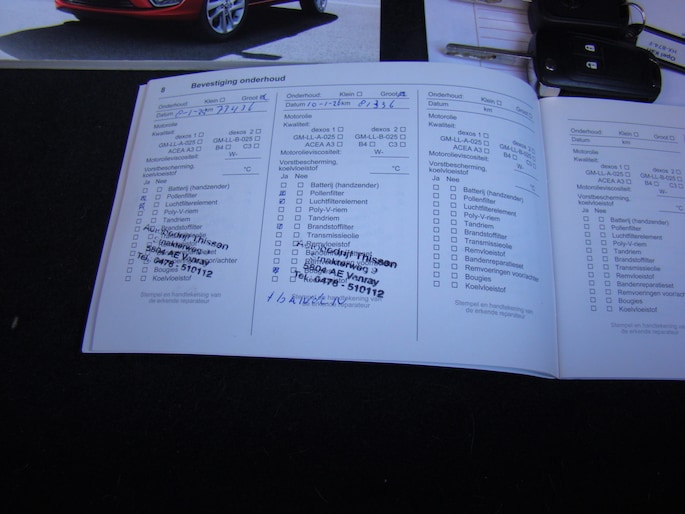 8 Bevestiging onderhoud
Onderhoud: Klein ☐ Groot
Datum 8-1-25 km 77436
Motorolie
Kwaliteit:
dexos 1 ☐ dexos 2 ☐
GM-LL-A-025 ☐ GM-LL-B-025 ☐
ACEA A3 ☐ B4 ☐ C3 ☐
Motorolieviscositeit: W-
Vorstbescherming,
koelvloeistof °C
Ja Nee
Batterij (handzender)
Pollenfilter
Luchtfilterelement
Poly-V-riem
Tandriem
Brandstoffilter
Bougies
Koelvloeistof
Thijssen
5804 AE Venray
Tel. 0478 - 510112
Stempel en handtekening van
de erkende reparateur
Onderhoud: Klein ☐ Groot
Datum 10-1-26 km 81336
Motorolie
Kwaliteit:
dexos 1 ☐ dexos 2 ☐
GM-LL-A-025 ☐ GM-LL-B-025 ☐
ACEA A3 ☐ B4 ☐ C3 ☐
Motorolieviscositeit: W-
Vorstbescherming,
koelvloeistof °C
Ja Nee
Batterij (handzender)
Pollenfilter
Luchtfilterelement
Poly-V-riem
Tandriem
Brandstoffilter
Transmissieolie
Remvloeistof
Thijssen
5804 AE Venray
Tel. 0478 - 510112
handtekening van
de erkende reparateur
Onderhoud: Klein ☐ Groot
Datum km
Motorolie
Kwaliteit:
dexos 1 ☐ dexos 2 ☐
GM-LL-A-025 ☐ GM-LL-B-025 ☐
ACEA A3 ☐ B4 ☐ C3 ☐
Motorolieviscositeit: W-
Vorstbescherming,
koelvloeistof °C
Ja Nee
Batterij (handzender)
Pollenfilter
Luchtfilterelement
Poly-V-riem
Tandriem
Brandstoffilter
Transmissieolie
Remvloeistof
Bandenreparatieset
Remvoeringen voor/achter
Bougies
Koelvloeistof
Stempel en handtekening van
de erkende reparateur
Onderhoud: Klein ☐ Groot
Datum km
Motorolie
Kwaliteit:
dexos 1 ☐ dexos 2
GM-LL-A-025 ☐ GM-LL-B-025
ACEA A3 ☐ B4 ☐ C3
Motorolieviscositeit: W-
Vorstbescherming,
koelvloeistof
Ja Nee
Batterij (handzender)
Pollenfilter
Luchtfilterelement
Poly-V-riem
Tandriem
Brandstoffilter
Transmissieolie
Remvloeistof
Bandenreparatieset
Remvoeringen voor/achter
Bougies
Koelvloeistof
Stempel en handtekening van
de erkende reparateur